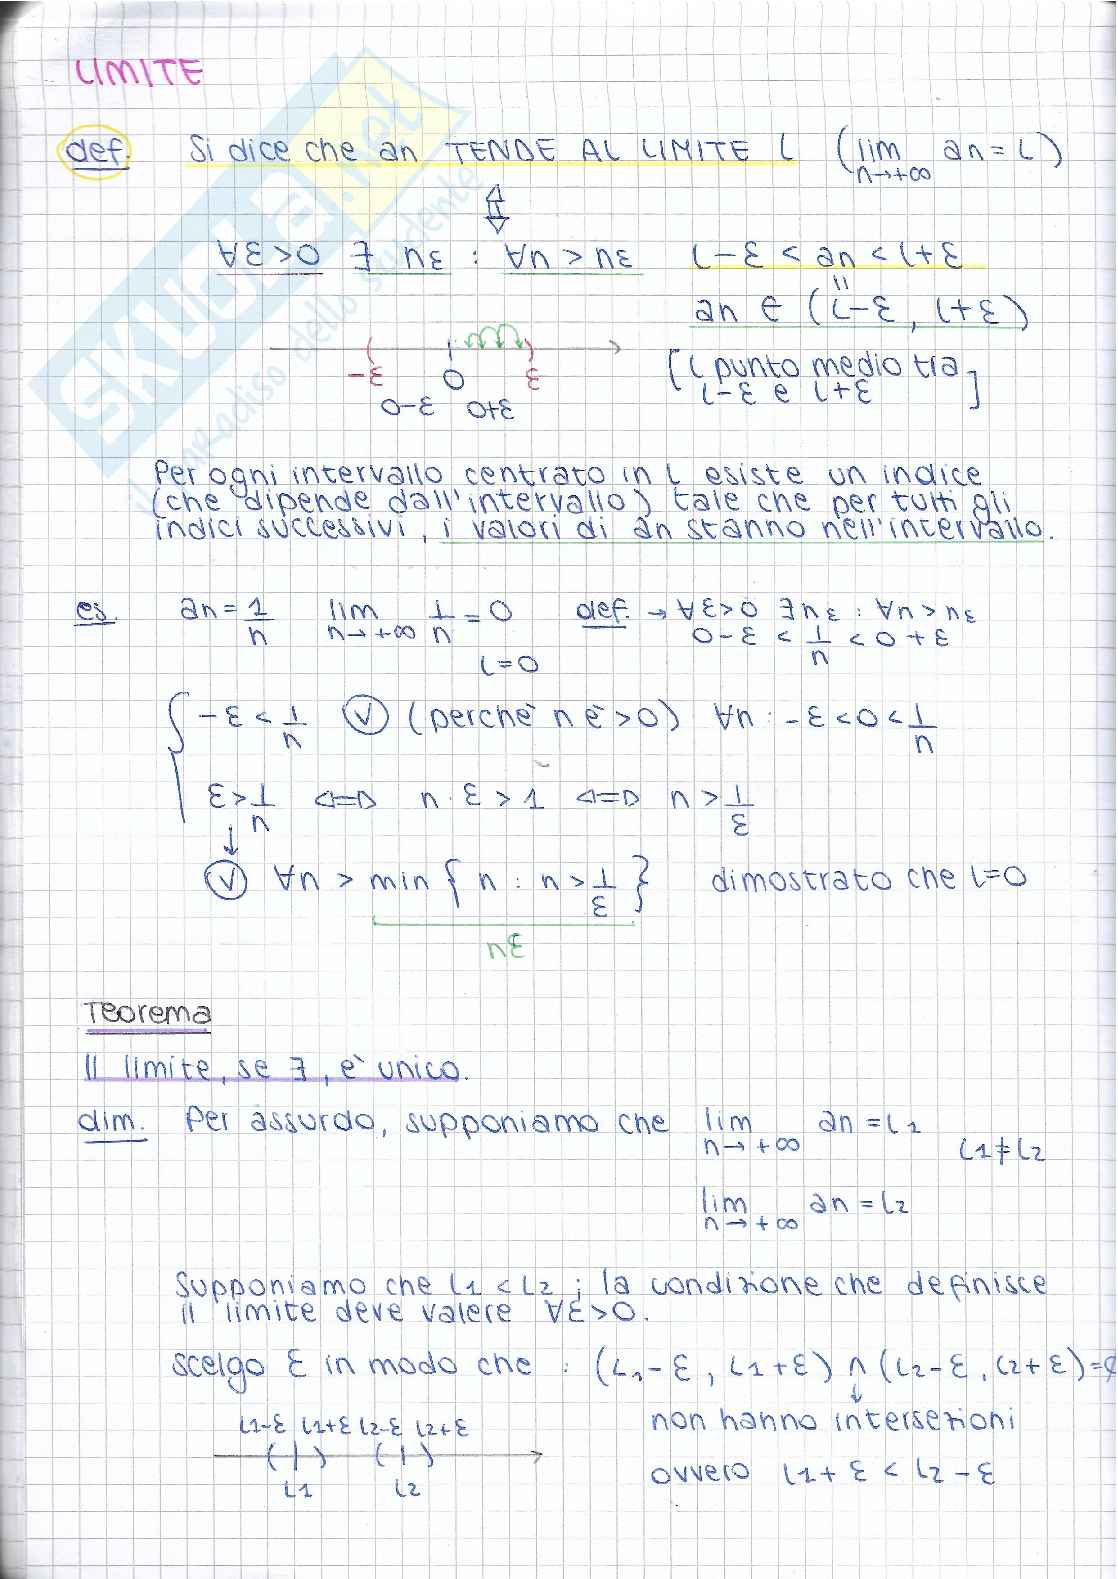 LIMITE
def. Si dice che an TENDE AL LIMITE l (lim n→+∞ an = l)
⇕
∀ε>0 ∃ nε : ∀n > nε l-ε < an < l+ε
an ∈ (l-ε, l+ε)
[l punto medio tra l-ε e l+ε]
-ε 0 ε
0-ε 0+ε
Per ogni intervallo centrato in l esiste un indice
(che dipende dall'intervallo) tale che per tutti gli
indici successivi, i valori di an stanno nell'intervallo.
es. an = 1/n lim n→+∞ 1/n = 0 def. → ∀ε>0 ∃nε : ∀n > nε
l=0 0-ε < 1/n < 0+ε
{ -ε < 1/n ✓ (perchè n è >0) ∀n : -ε < 0 < 1/n
ε > 1/n ⇔ n·ε > 1 ⇔ n > 1/ε
↓
✓ ∀n > min { n : n > 1/ε } dimostrato che l=0
nε
Teorema
Il limite, se ∃, è unico.
dim. Per assurdo, supponiamo che lim n→+∞ an = l1
l1 ≠ l2
lim n→+∞ an = l2
Supponiamo che l1 < l2 ; la condizione che definisce
il limite deve valere ∀ε>0.
scelgo ε in modo che : (l1-ε, l1+ε) ∩ (l2-ε, l2+ε) = ∅
↓
l1-ε l1+ε l2-ε l2+ε non hanno intersezioni
l1 l2 ovvero l1+ε < l2-ε
SKUOLA.net
il paradiso dello studente